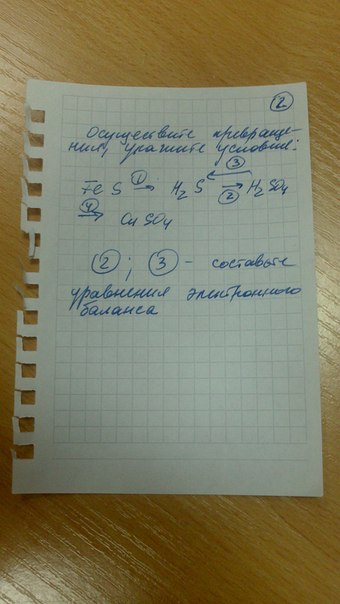 ②
Осуществите превраще-
ния, укажите условия:
③
FeS ①→ H₂S ⇄ ② H₂SO₄
④→ CuSO₄
②; ③ - составьте
уравнения электронного
баланса